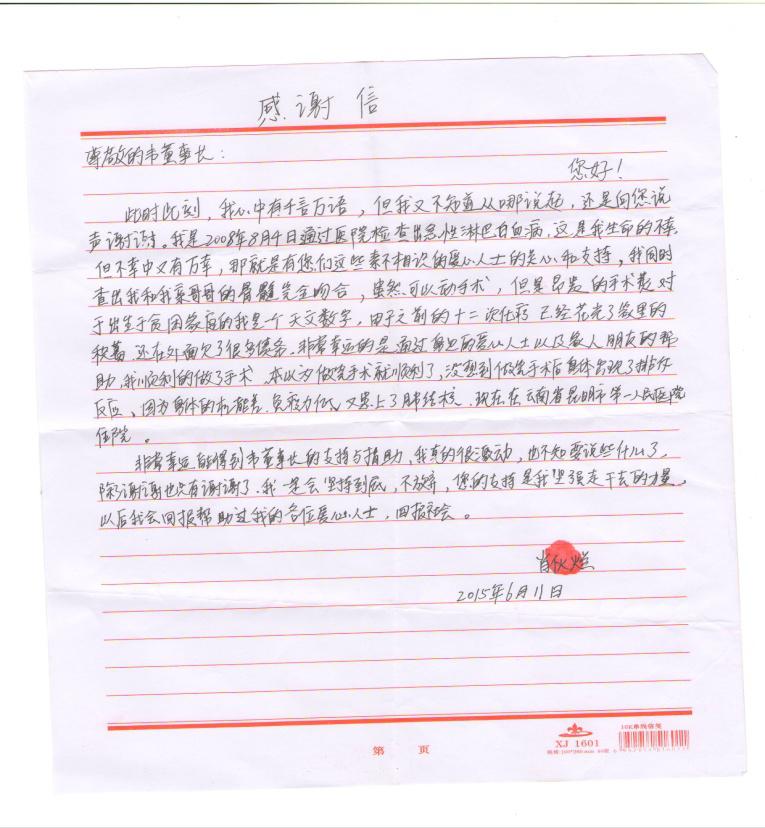 感谢信
尊敬的韦董事长：
您好！
此时此刻，我心中有千言万语，但我又不知道从哪说起，还是向您说
声谢谢。我是2008年8月4日通过医院检查出急性淋巴白血病，这是我生命的不幸。
但不幸中又有万幸，那就是有您们这些素不相识的爱心人士的关心和支持，我同时
查出我和我亲哥哥的骨髓完全吻合，虽然可以动手术，但是昂贵的手术费对
于出生于贫困家庭的我是一个天文数字，由于之前的十二次化疗已经花光了家里的
积蓄，还在外面欠了很多债务。非常幸运的是通过身边的爱心人士以及家人朋友的帮
助，我顺利的做了手术，本以为做完手术就顺利了，没想到做完手术后身体出现了排斥
反应，因为身体的机能差，免疫力低，又患上了肺结核，现在在云南省昆明市第一人民医院
住院。
非常幸运能得到韦董事长的支持与捐助，我真的很激动，也不知要说些什么了，
除谢谢也只有谢谢了。我一定会坚持到底，不放弃，您的支持是我坚强走下去的力量。
以后我会回报帮助过我的各位爱心人士，回报社会。
肖伙烂
2015年6月11日
第 页
16K单线信笺
XJ 1601